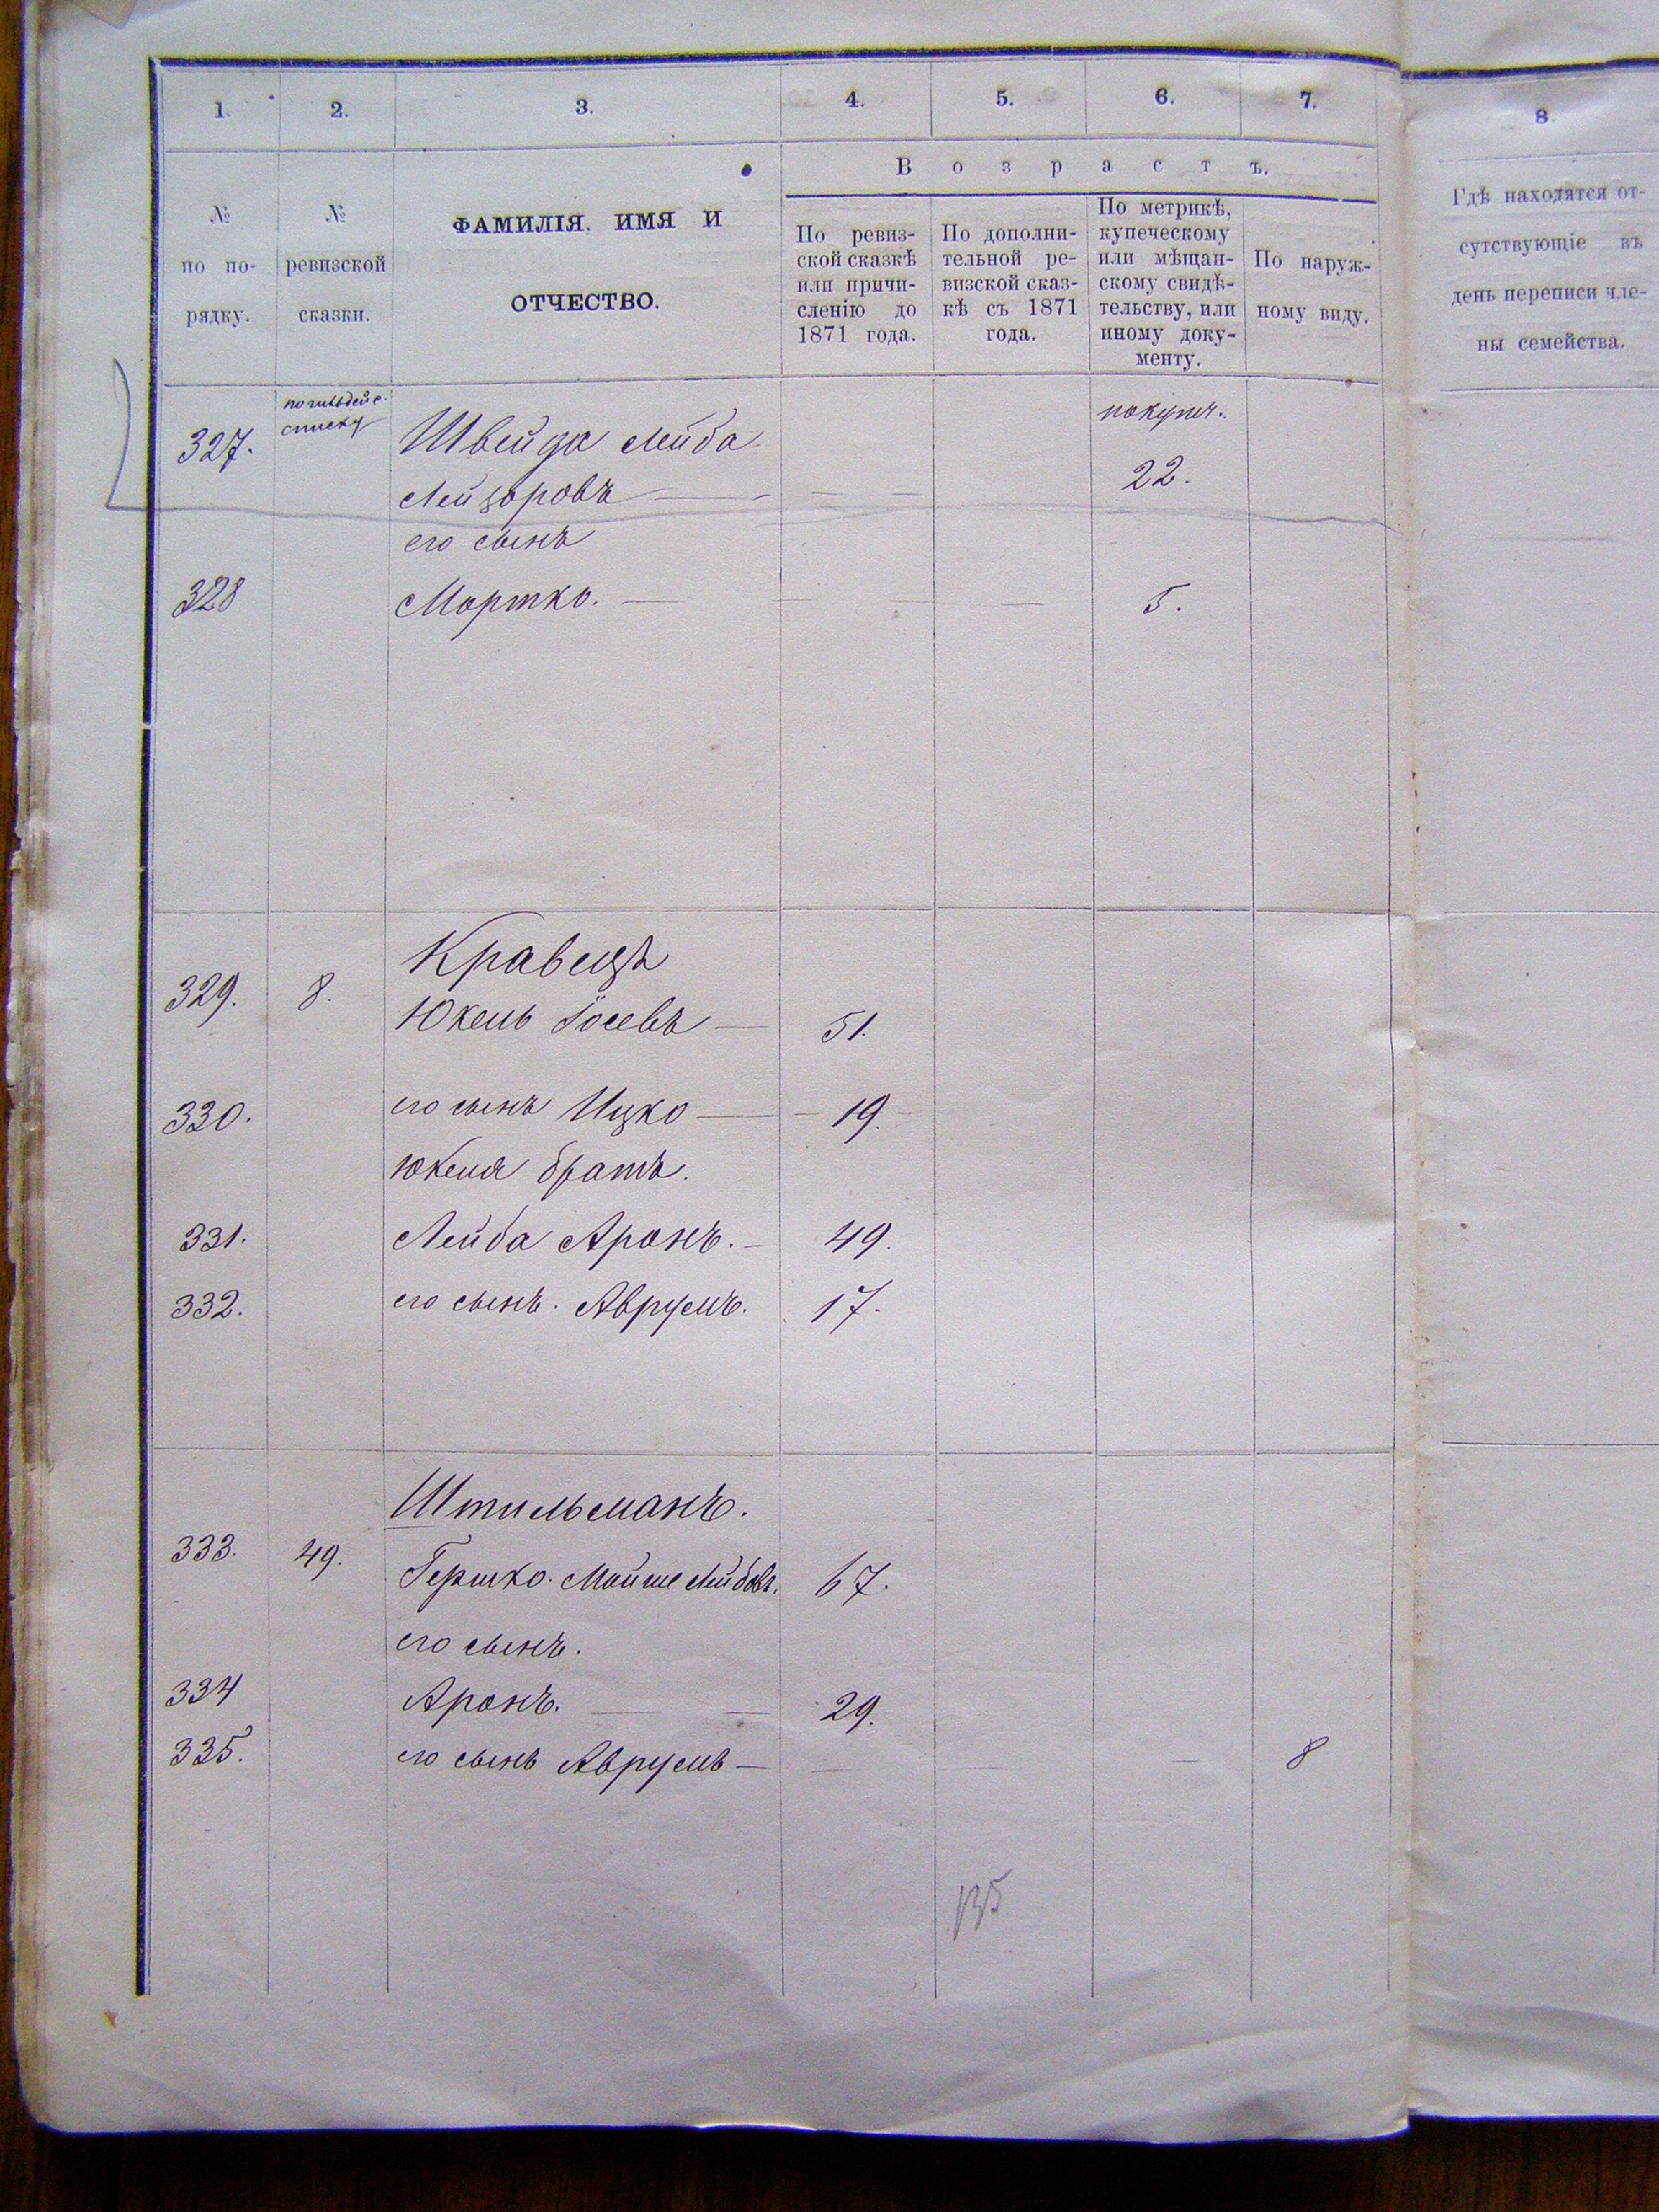 1. 2. 3. 4. 5. 6. 7. 8.
Возрастъ.
№ по по-
рядку.
№
ревизской
сказки.
ФАМИЛІЯ. ИМЯ И
ОТЧЕСТВО.
По ревиз-
ской сказкѣ
или причи-
сленію до
1871 года.
По дополни-
тельной ре-
визской сказ-
кѣ съ 1871
года.
По метрикѣ,
купеческому
или мѣщан-
скому свидѣ-
тельству, или
иному доку-
менту.
По наруж-
ному виду.
Гдѣ находятся от-
сутствующіе въ
день переписи чле-
ны семейства.
списку
327. Лейба
Лейзоровъ 22.
его сынъ
328 Мортко. 5.
Кравецъ
329. 8. Юкель Іосевъ 51.
330. его сынъ Ицко 19.
Юкеля братъ.
331. Лейба Аронъ. 49.
332. его сынъ. Аврумъ. 17.
Штильманъ.
333. 49. Гершко. Мойше Лейбовъ. 67.
его сынъ.
334 Аронъ. 29.
335. его сынъ Аврумъ 8
135